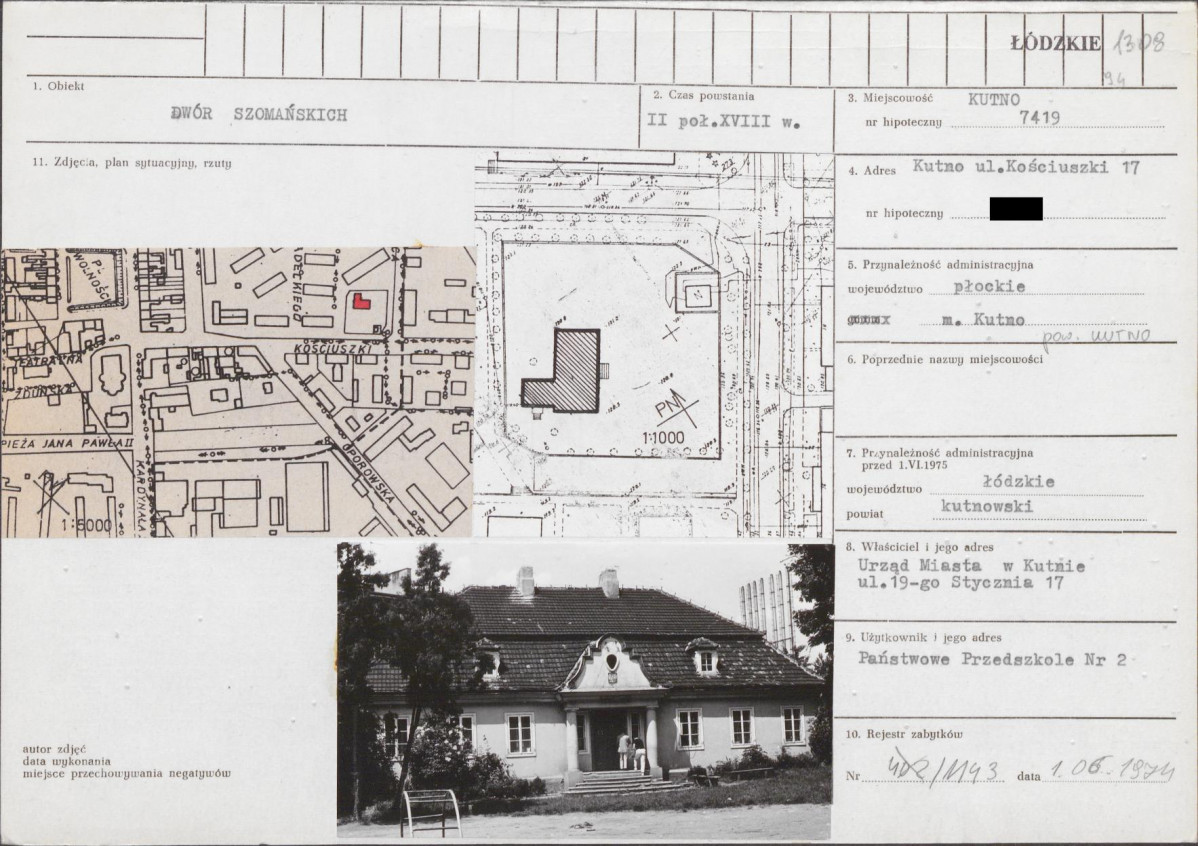 ŁÓDZKIE 1308
94
1. Obiekt
DWÓR SZOMAŃSKICH
2. Czas powstania
II poł.XVIII w.
3. Miejscowość KUTNO
nr hipoteczny 7419
11. Zdjęcia, plan sytuacyjny, rzuty
4. Adres Kutno ul.Kościuszki 17
nr hipoteczny
5. Przynależność administracyjna
województwo płockie
m. Kutno
pow. KUTNO
6. Poprzednie nazwy miejscowości
7. Przynależność administracyjna
przed 1.VI.1975
województwo łódzkie
powiat kutnowski
8. Właściciel i jego adres
Urząd Miasta w Kutnie
ul.19-go Stycznia 17
9. Użytkownik i jego adres
Państwowe Przedszkole Nr 2
10. Rejestr zabytków
Nr 402/1143 data 1.06.1974
PL.
WOLNOŚCI
KOŚCIUSZKI
TEATRALNA
ZDUŃSKA
PIEŻA JANA PAWŁA II
OPOROWSKA
KARDYNAŁA
1:5000
PN
1:1000
autor zdjęć
data wykonania
miejsce przechowywania negatywów